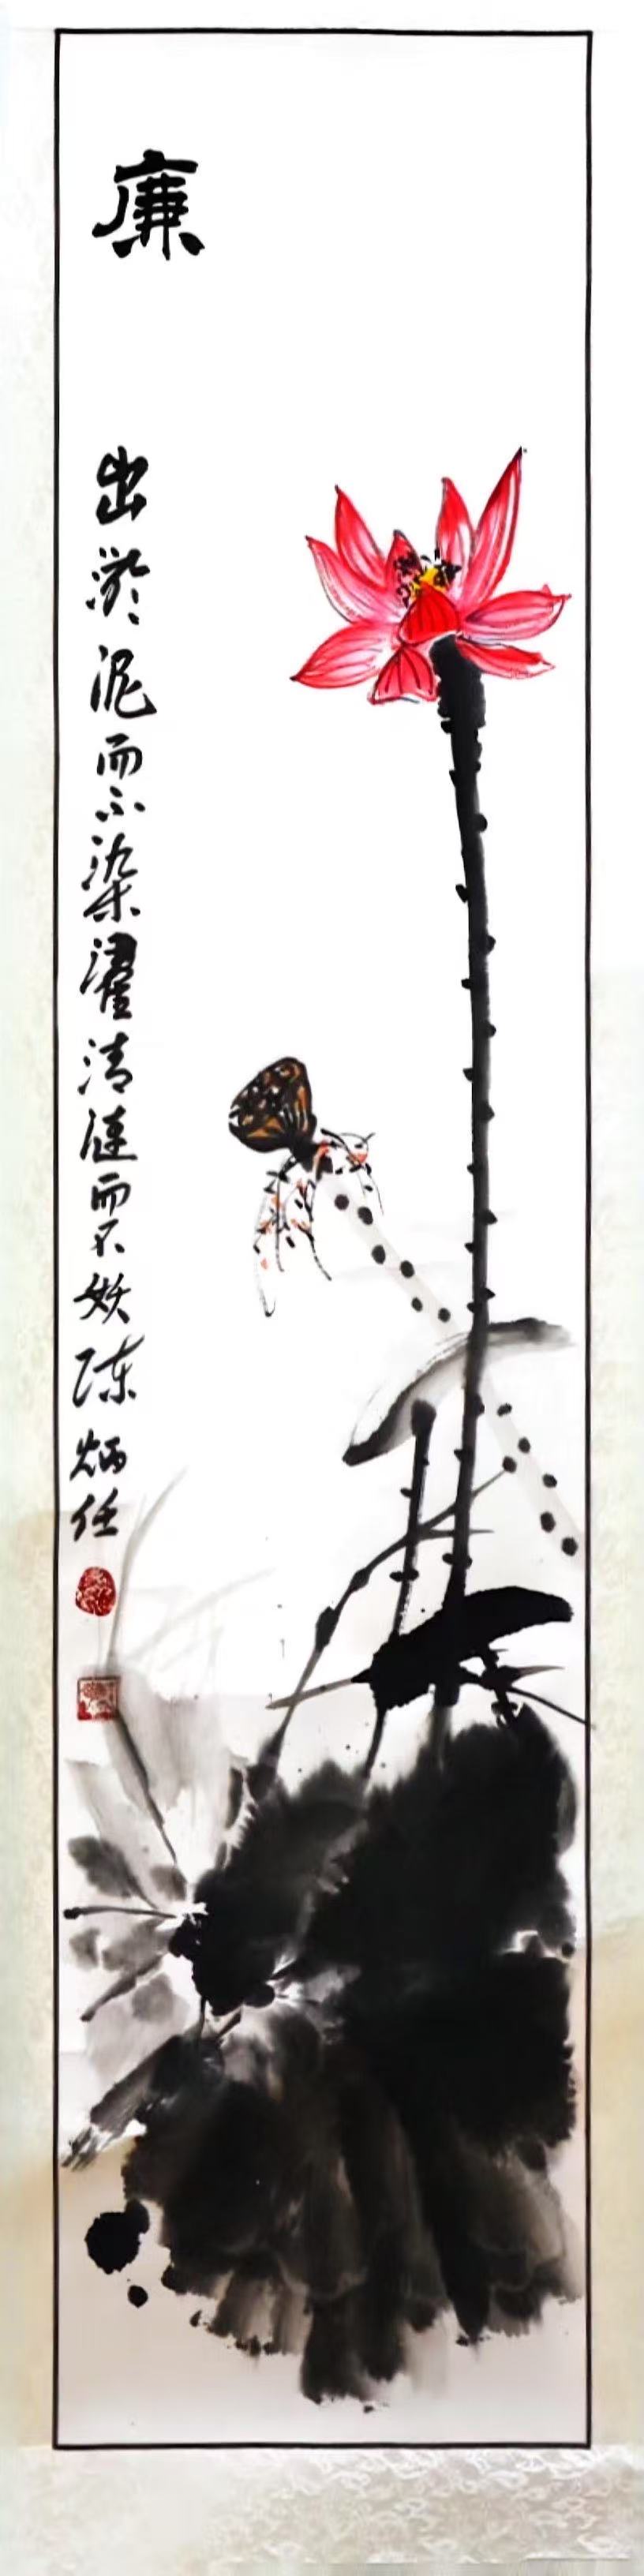 廉
出淤泥而不染濯清涟而不妖陈炳任